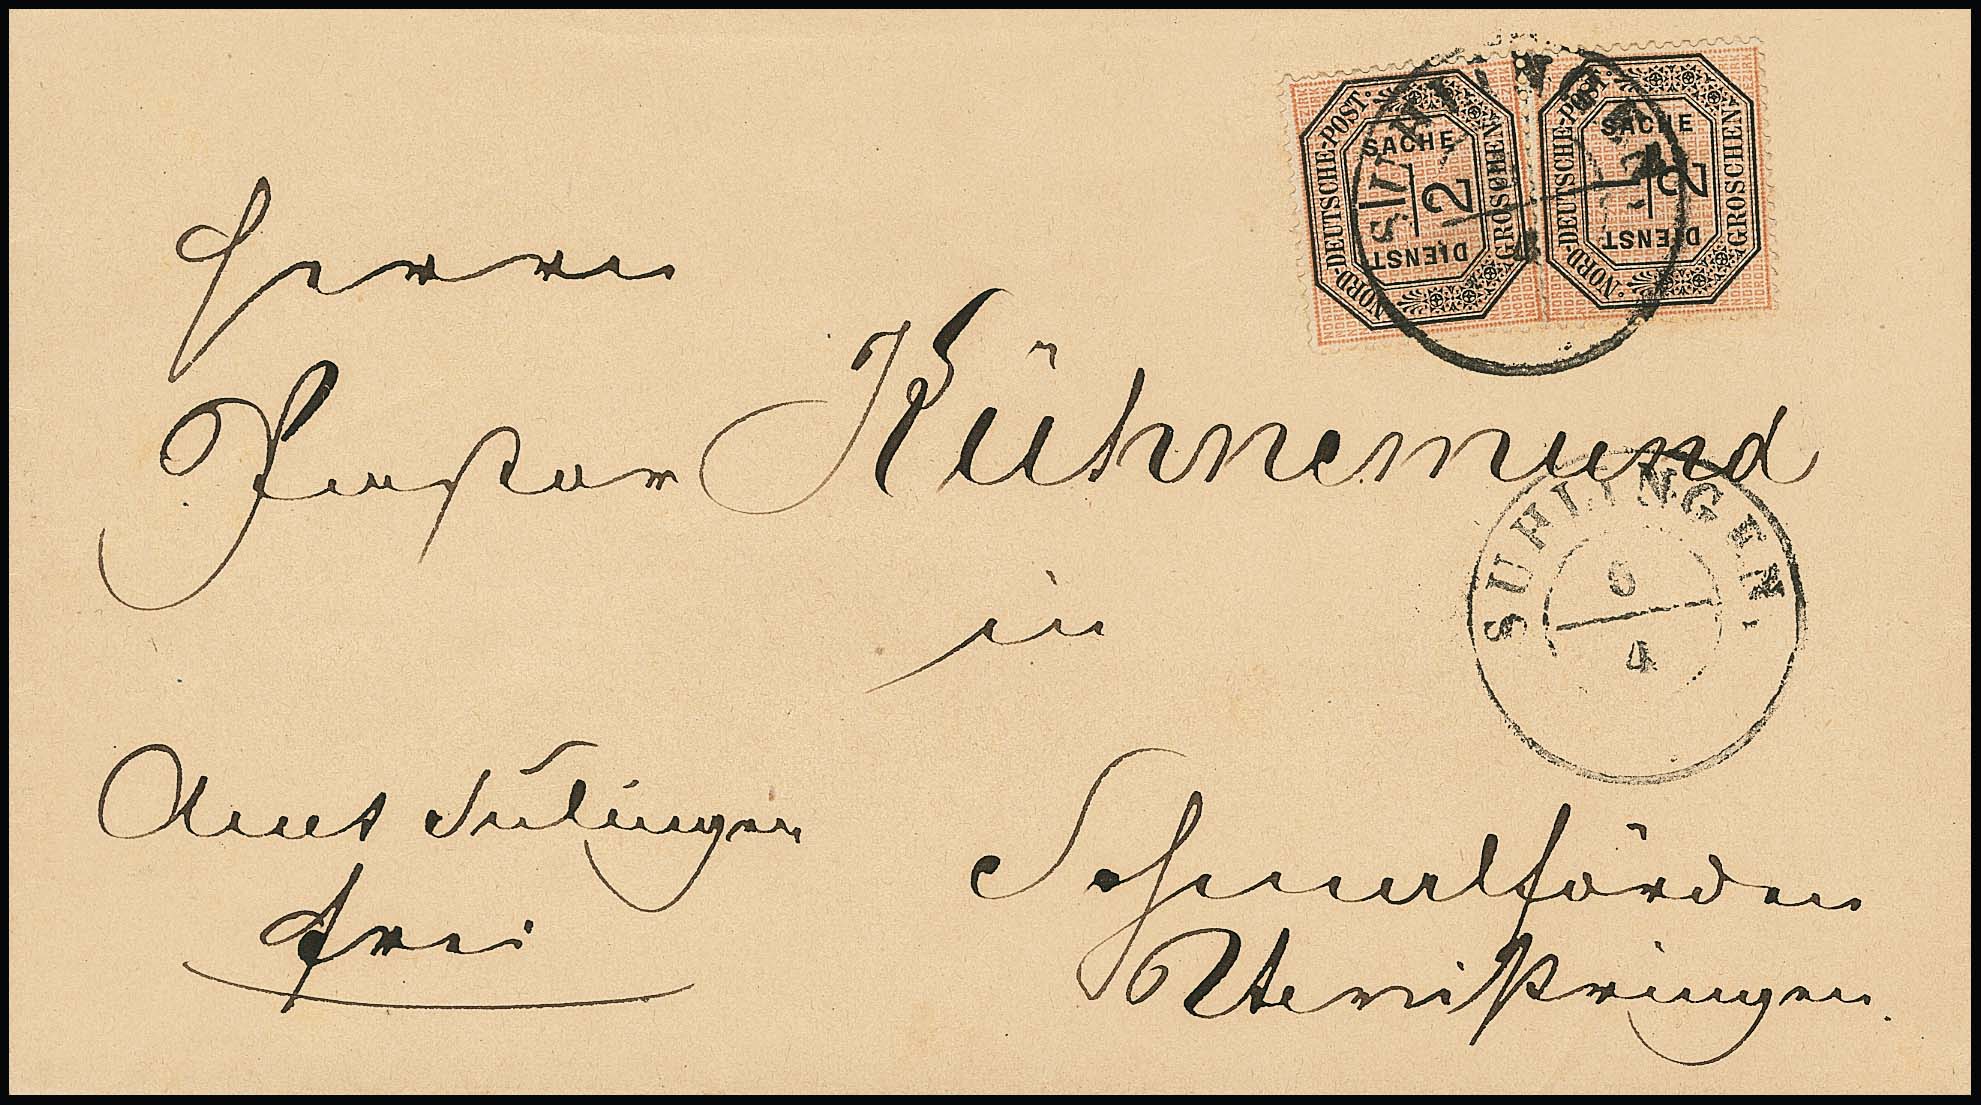 NORD-DEUTSCHE-POST
SACHE
1/2
DIENST
GROSCHEN
NORD-DEUTSCHE-POST
SACHE
1/2
DIENST
GROSCHEN
Herrn
Pastor Kühnemund
in
SUHLINGEN.
6
4
Amt Sulingen
frei
Schmalförden